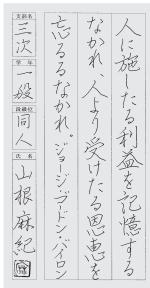 人に施したる利益を記憶する
なかれ、人より受けたる恩恵を
忘るるなかれ。ジョージ・ゴードン・バイロン
支部名 三次
学年 一般
段級位 同人
氏名 山根麻紀